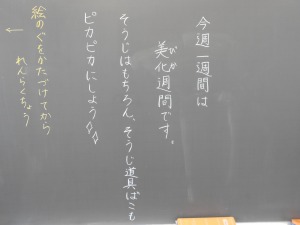 今週一週間は
美化週間です。
びか
そうじはもちろん、そうじ道具ばこも
ピカピカにしよう
絵のぐをかたづけてから
れんらくちょう